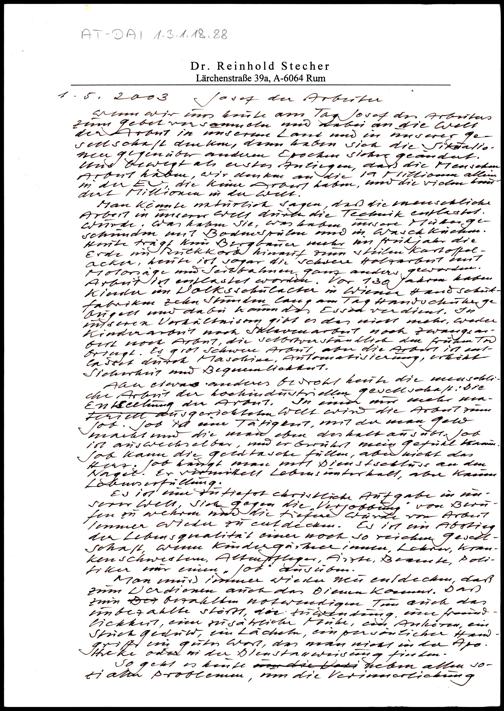 AT-DAI 1.3.1.18.28
Dr. Reinhold Stecher
Lärchenstraße 39a, A-6064 Rum
1. 5. 2003 Josef der Arbeiter
Wenn wir uns heute am Tag Josef des Arbeiters
zum Gebet versammeln und dabei an die Welt
der Arbeit in unserem Land und in unserer Ge-
sellschaft denken, dann haben sich die Situatio-
nen gegenüber anderen Epochen sicher geändert.
Uns bewegt als erstes Anliegen, daß die Menschen
Arbeit haben, wir denken an die Millionen allein
in der EU, die keine Arbeit haben, und die vielen hun-
dert Millionen in der Welt.
Man könnte natürlich sagen, daß die menschliche
Arbeit in unserer Welt durch die Technik entlastet
wurde. Was haben unsere Mütter ge-
schunden mit Bodenspülen und in Waschküchen.
Heute trägt kein Bergbauer mehr im Frühjahr die
Erde im Rückkorb hinauf zum steilen Kartoffel-
acker, heute ist sogar die schwere Holzarbeit mit
Motorsäge und Seilbahnen ganz anders geworden.
Arbeit ist entlastet worden. Vor 130 Jahren haben
Kinder im Volksschulalter in Wiener Handschuh-
fabriken zehn Stunden lang am Tag Handschuhe ge-
bügelt und dabei kaum das Essen verdient. In
unseren Verhältnissen gibt es das nicht mehr, weder
Kinderarbeit noch Sklavenarbeit noch Zwangsar-
beit noch Arbeit, die selbstverständlich den frühen Tod
bringt. Es gibt schwere Arbeit, aber die Arbeit ist ent-
lastet durch Maschine, Automatisierung, erhöht
Sicherheit und Bequemlichkeit.
Aber etwas anderes bedroht heute die menschli-
che Arbeit der hochindustriellen Gesellschaft: Die
Entseelung der Arbeit. In einer nur mehr ma-
teriell ausgerichteten Welt wird die Arbeit zum
Job. Job ist eine Tätigkeit, mit der man Geld
macht und die man eben deshalb ausübt. Job
ist auswechselbar und berührt mein Gefühl kaum.
Job kann die Geldtasche füllen, aber nicht das
Herz. Job hängt man mit Dienstschluss an den
Nagel. Er vermittelt Lebensunterhalt, aber kaum
Lebenserfüllung.
Es ist eine zutiefst christliche Aufgabe in un-
serer Welt, sich gegen die Verjobbung von Beru-
fen zu wehren und die tiefere Würde von Arbeit
immer wieder zu entdecken. Es ist ein Abstieg
der Lebensqualität einer noch so reichen Gesell-
schaft, wenn Kindergärtnerinnen, Lehrer, Kran-
kenschwestern, Altenpfleger, Ärzte, Beamte, Poli-
tiker nur einen "Job" ausüben.
Man muß immer wieder neu entdecken, daß
zum Verdienen auch das Dienen kommt. Daß
zum bezahlten notwendigen Tun auch das
unbezahlte stößt, der Zuwendung, eine Freund-
lichkeit, eine zusätzliche Mühe, ein Anhören, ein
Strich Geduld, ein Lächeln, ein persönlicher Hand-
griff, ein gutes Wort, das man nicht in der Apo-
theke oder in der Dienstanweisung findet.
So geht es heute neben allen so-
zialen Problemen, um die Verinnerlichung